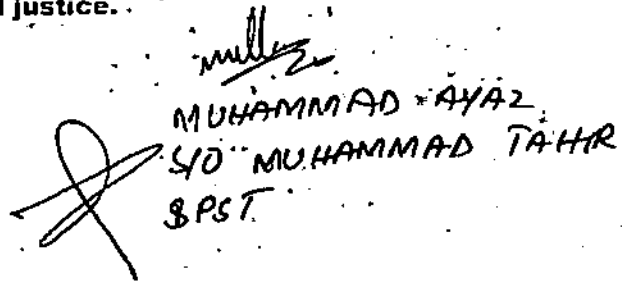 justice.
MUHAMMAD AYAZ
S/O MUHAMMAD TAHIR
SPST